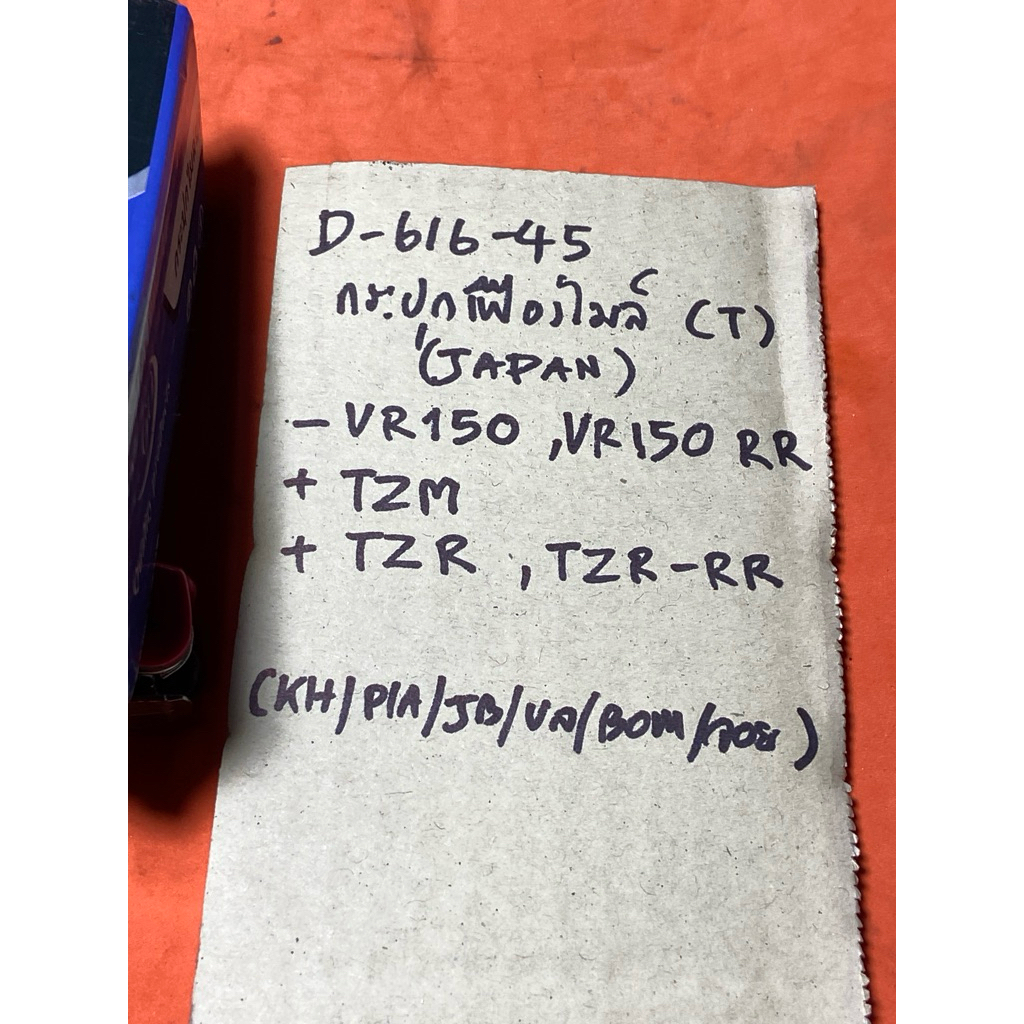 D-616-45
กระปุกเฟืองไมล์ (T)
(JAPAN)
- VR150 , VR150 RR
+ TZM
+ TZR , TZR-RR
(KH/PIA/JB/ /BOM/ )